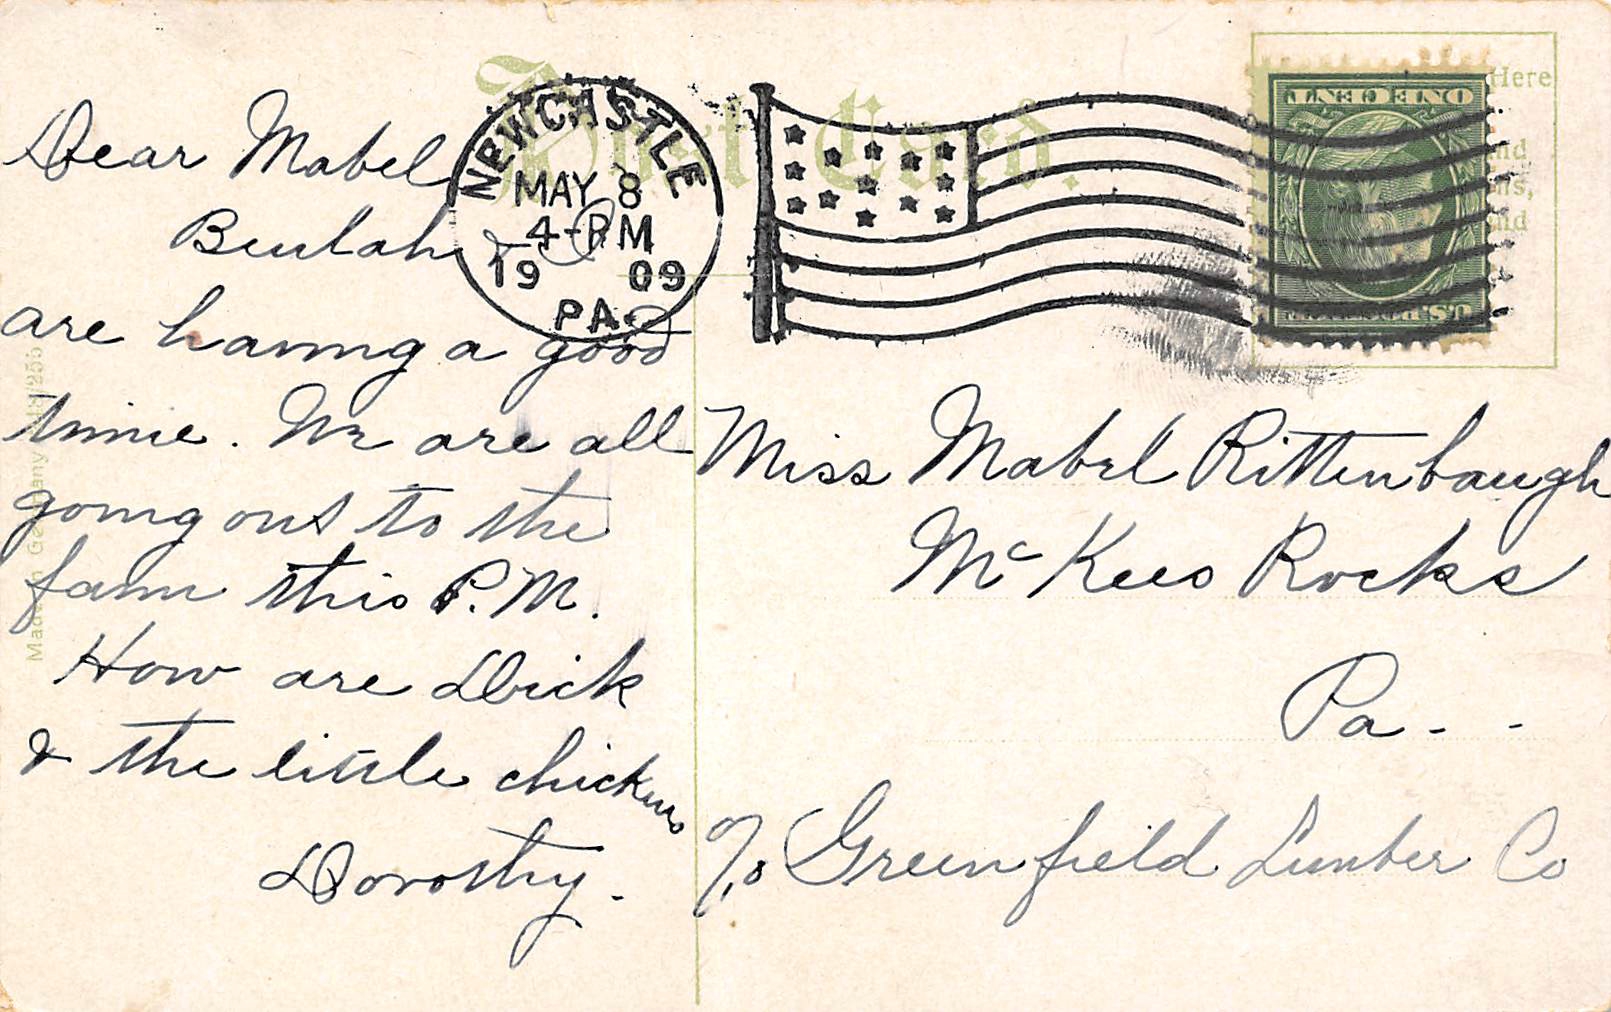 Post Card.
NEWCASTLE
MAY 8
4-PM
19 09
PA.
ONE CENT
Here
Dear Mabel
Beulah & I
are having a good
time. We are all
going out to the
farm this P.M.
How are Dick
& the little chickens
Dorothy.
Miss Mabel Rittenbaugh
McKees Rocks
Pa.
c/o Greenfield Lumber Co
Made in Germany